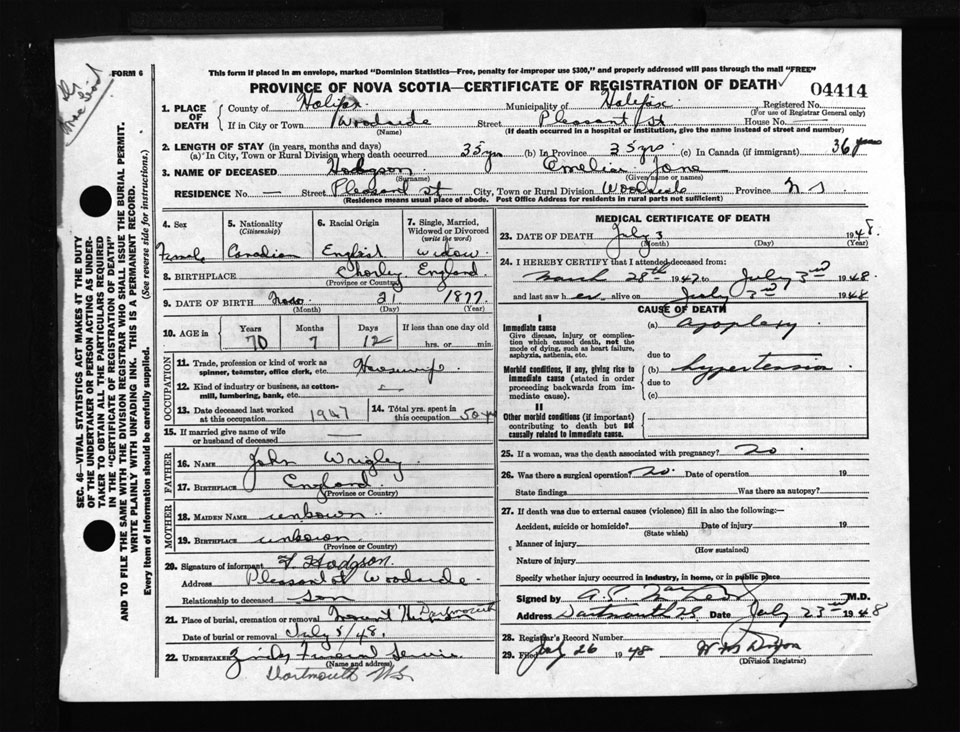 FORM 6
This form if placed in an envelope, marked "Dominion Statistics—Free, penalty for improper use $300," and properly addressed will pass through the mail "FREE"
PROVINCE OF NOVA SCOTIA—CERTIFICATE OF REGISTRATION OF DEATH
04414
1. PLACE OF DEATH
County of Halifax Municipality of Halifax Registered No.
(For use of Registrar General only)
If in City or Town Woodside Street Pleasant St House No. —
(Name) (If death occurred in a hospital or institution, give the name instead of street and number)
2. LENGTH OF STAY (in years, months and days)
(a) In City, Town or Rural Division where death occurred 35 yrs (b) In Province 35 yrs. (c) In Canada (if immigrant) 36 years
3. NAME OF DECEASED Hodgson Emelia Jane
(Surname) (Given name or names)
RESIDENCE No. — Street Pleasant St City, Town or Rural Division Woodside Province N S
(Residence means usual place of abode. Post Office Address for residents in rural parts not sufficient)
4. Sex Female
5. Nationality (Citizenship) Canadian
6. Racial Origin English
7. Single, Married, Widowed or Divorced (write the word) Widow
8. BIRTHPLACE Chorley England
(Province or Country)
9. DATE OF BIRTH 21 1877
(Month) (Day) (Year)
10. AGE in Years Months Days If less than one day old
70 7 12 hrs. or min.
OCCUPATION
11. Trade, profession or kind of work as spinner, teamster, office clerk, etc. Housewife
12. Kind of industry or business, as cotton-mill, lumbering, bank, etc. —
13. Date deceased last worked at this occupation 1947
14. Total yrs. spent in this occupation 50 yrs
15. If married give name of wife or husband of deceased —
FATHER
16. NAME John Wrigly
17. BIRTHPLACE England
(Province or Country)
MOTHER
18. MAIDEN NAME unkown
19. BIRTHPLACE unkown
(Province or Country)
20. Signature of informant Hodgson.
Address Pleasant St Woodside.
Relationship to deceased Son
21. Place of burial, cremation or removal Mount Dartmouth
Date of burial or removal July 5/48.
22. UNDERTAKER Funeral Service
(Name and address)
Dartmouth NS
MEDICAL CERTIFICATE OF DEATH
23. DATE OF DEATH July 3 1948.
(Month) (Day) (Year)
24. I HEREBY CERTIFY that I attended deceased from:
March 28th 1947 to July 3rd 1948.
and last saw her alive on July 3rd 1948
CAUSE OF DEATH
I
Immediate cause
Give disease, injury or complication which caused death, not the mode of dying, such as heart failure, asphyxia, asthenia, etc.
(a) apoplexy
due to
Morbid conditions, if any, giving rise to immediate cause (stated in order proceeding backwards from immediate cause).
(b) hypertension
due to
(c)
II
Other morbid conditions (if important) contributing to death but not causally related to immediate cause.
25. If a woman, was the death associated with pregnancy? no.
26. Was there a surgical operation? no. Date of operation 19
State findings Was there an autopsy?
27. If death was due to external causes (violence) fill in also the following:—
Accident, suicide or homicide? Date of injury 19
(State which)
Manner of injury
(How sustained)
Nature of injury
Specify whether injury occurred in industry, in home, or in public place
Signed by M.D.
Address Dartmouth N.S. Date July 23rd 1948
28. Registrar's Record Number
29. Filed July 26 1948 Dixon
(Division Registrar)
SEC. 46—VITAL STATISTICS ACT MAKES IT THE DUTY
OF THE UNDERTAKER OR PERSON ACTING AS UNDER-
TAKER TO OBTAIN ALL THE PARTICULARS REQUIRED
IN THE "CERTIFICATE OF REGISTRATION OF DEATH"
AND TO FILE THE SAME WITH THE DIVISION REGISTRAR WHO SHALL ISSUE THE BURIAL PERMIT.
WRITE PLAINLY WITH UNFADING INK. THIS IS A PERMANENT RECORD.
Every item of information should be carefully supplied. (See reverse side for instructions.)